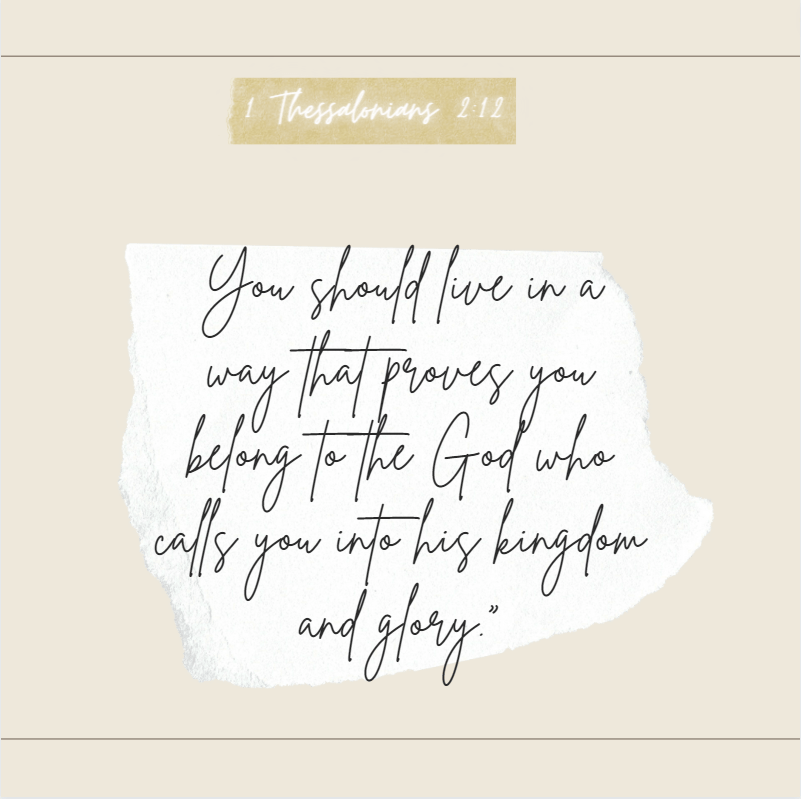 1 Thessalonians 2:12
You should live in a
way that proves you
belong to the God who
calls you into his kingdom
and glory.”